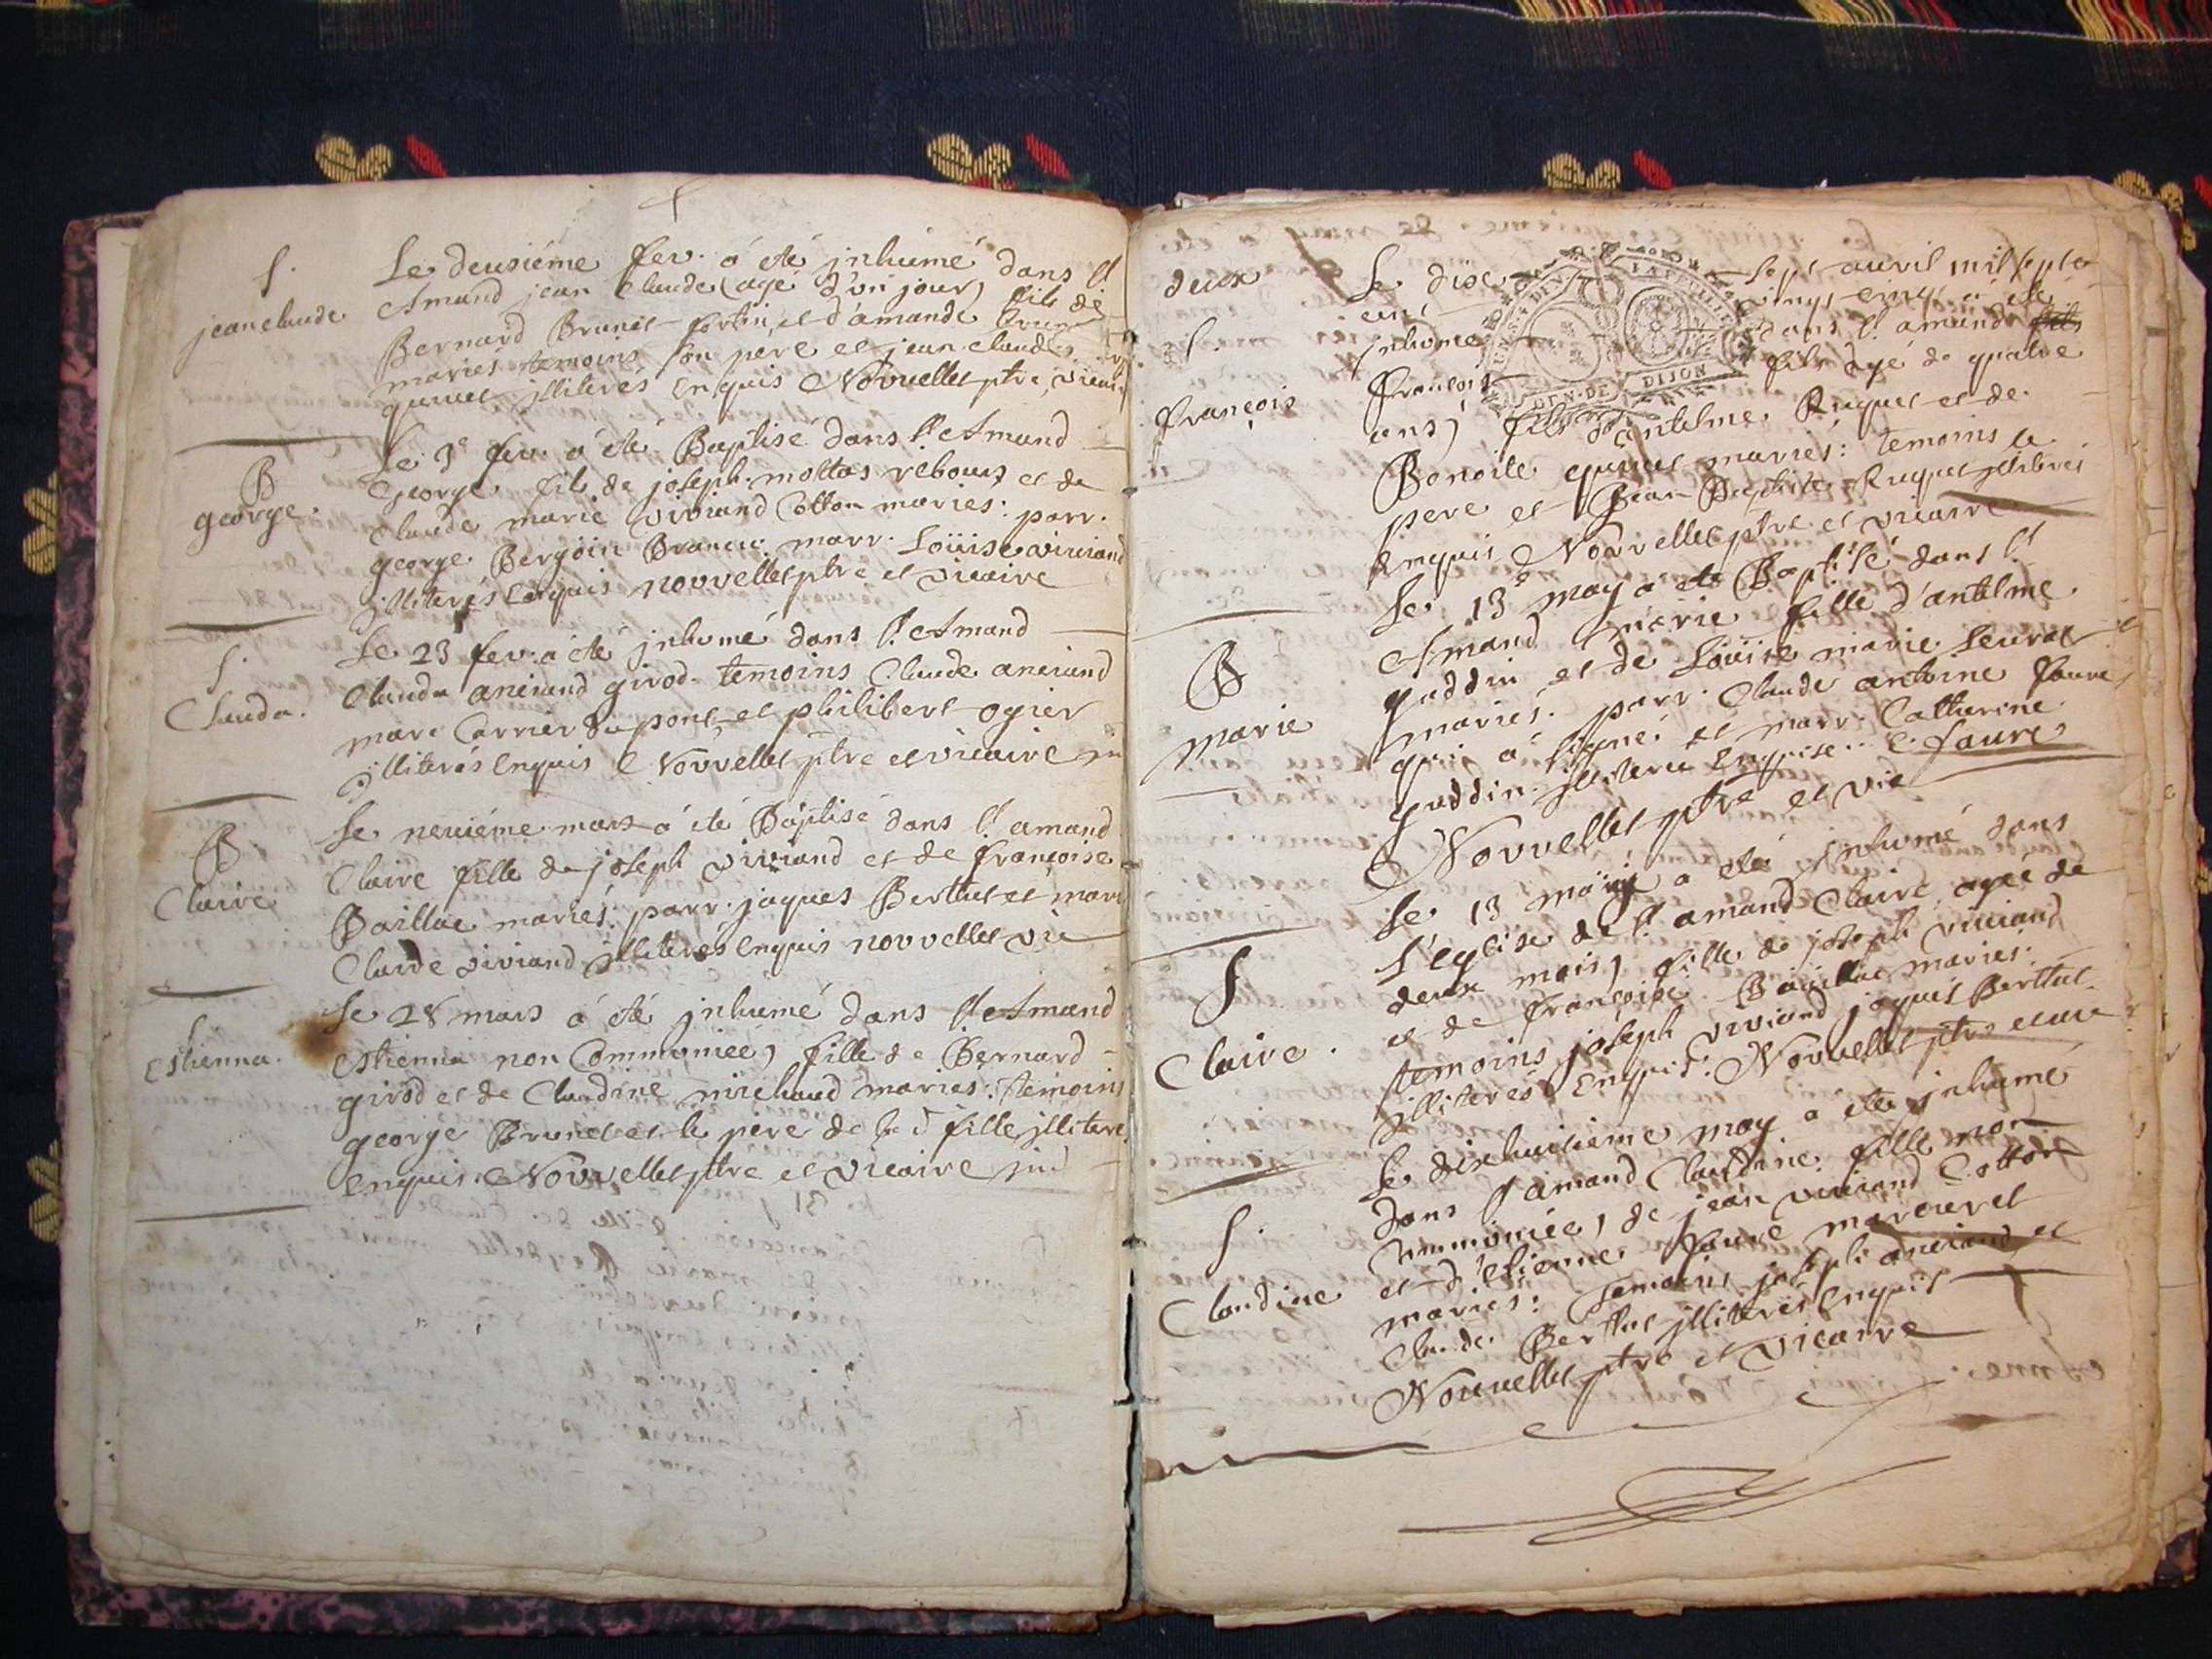 S.
jean claude
Le deusiéme fev. á eté jnhumé dans St
Amand jean Claude (agé d'vn jour) fils de
Bernard Brunet fortin et d'amande
mariés temoins son pere et jean claude
jlliterés enquis Nouvellet ptre vicaire
B
george.
Le 3e fev. á eté Baptisé dans St Amand
George fils de joseph mottas rebours et de
Claude marie viviand Cotton mariés: parr.
george Bergoin marr. Loüise viviand
jlliterés enquis nouvellet ptre et vicaire
S.
Clauda.
Le 23 fev. á eté jnhumé dans St Amand
Clauda anciand girod. temoins Claude anciand
marc Carrier du pont et philibert ogier
jlliterés enquis Nouvellet ptre et vicaire
B
Claire
Le neuviéme mars á eté Baptisé dans St amand
Claire fille de joseph viviand et de françoise
Baillac mariés: parr. jaques Berthet et marr
Claude viviand jlliterés enquis nouvellet vic
S
Estienna.
Le 28 mars á eté jnhumé dans St Amand
Estienna non Communiée) fille de Bernard
girod et de Claudine michaud mariés: temoins
george Brunet et le pere de la d fille jllitere
enquis Nouvellet ptre et vicaire
deux
Le dix sept avril mil sept
cent vingt cinq á eté
S.
jnhumé dans St amand fils
françois
françois fils agé de quatre
ans) fils d'antelme Ruquet et de
Benoite mariés: temoins le
pere et Jean Baptiste Ruquet jlliterés
enquis Nouvellet ptre et vicaire
B
marie
Le 13e may a eté Baptisé dans St
Amand marie fille d'antelme
gaddin et de Loüise marie
mariés. parr. Claude antoine faure
qui a signé et marr. Catherine
gaddin jlliterée enquise. C. faure
Nouvellet ptre et vic
S
Claire.
Le 13 may a eté jnhumé dans
L'eglise de St amand Claire agée de
deux mois) fille de joseph viviand
et de françoise Baillac mariés.
temoins joseph viviand jaques Berthet
jlliterés enquis. Nouvellet ptre
S.
Claudine
Le dixhuitieme may a eté jnhumé
dans St amand Claudine fille non
Communiée) de jean viviand Cotton
et d'estienne faure
mariés: temoins joseph anciand et
Claude Berthet jlliterés enquis
Nouvellet ptre et vicaire
GEN. DE DIJON